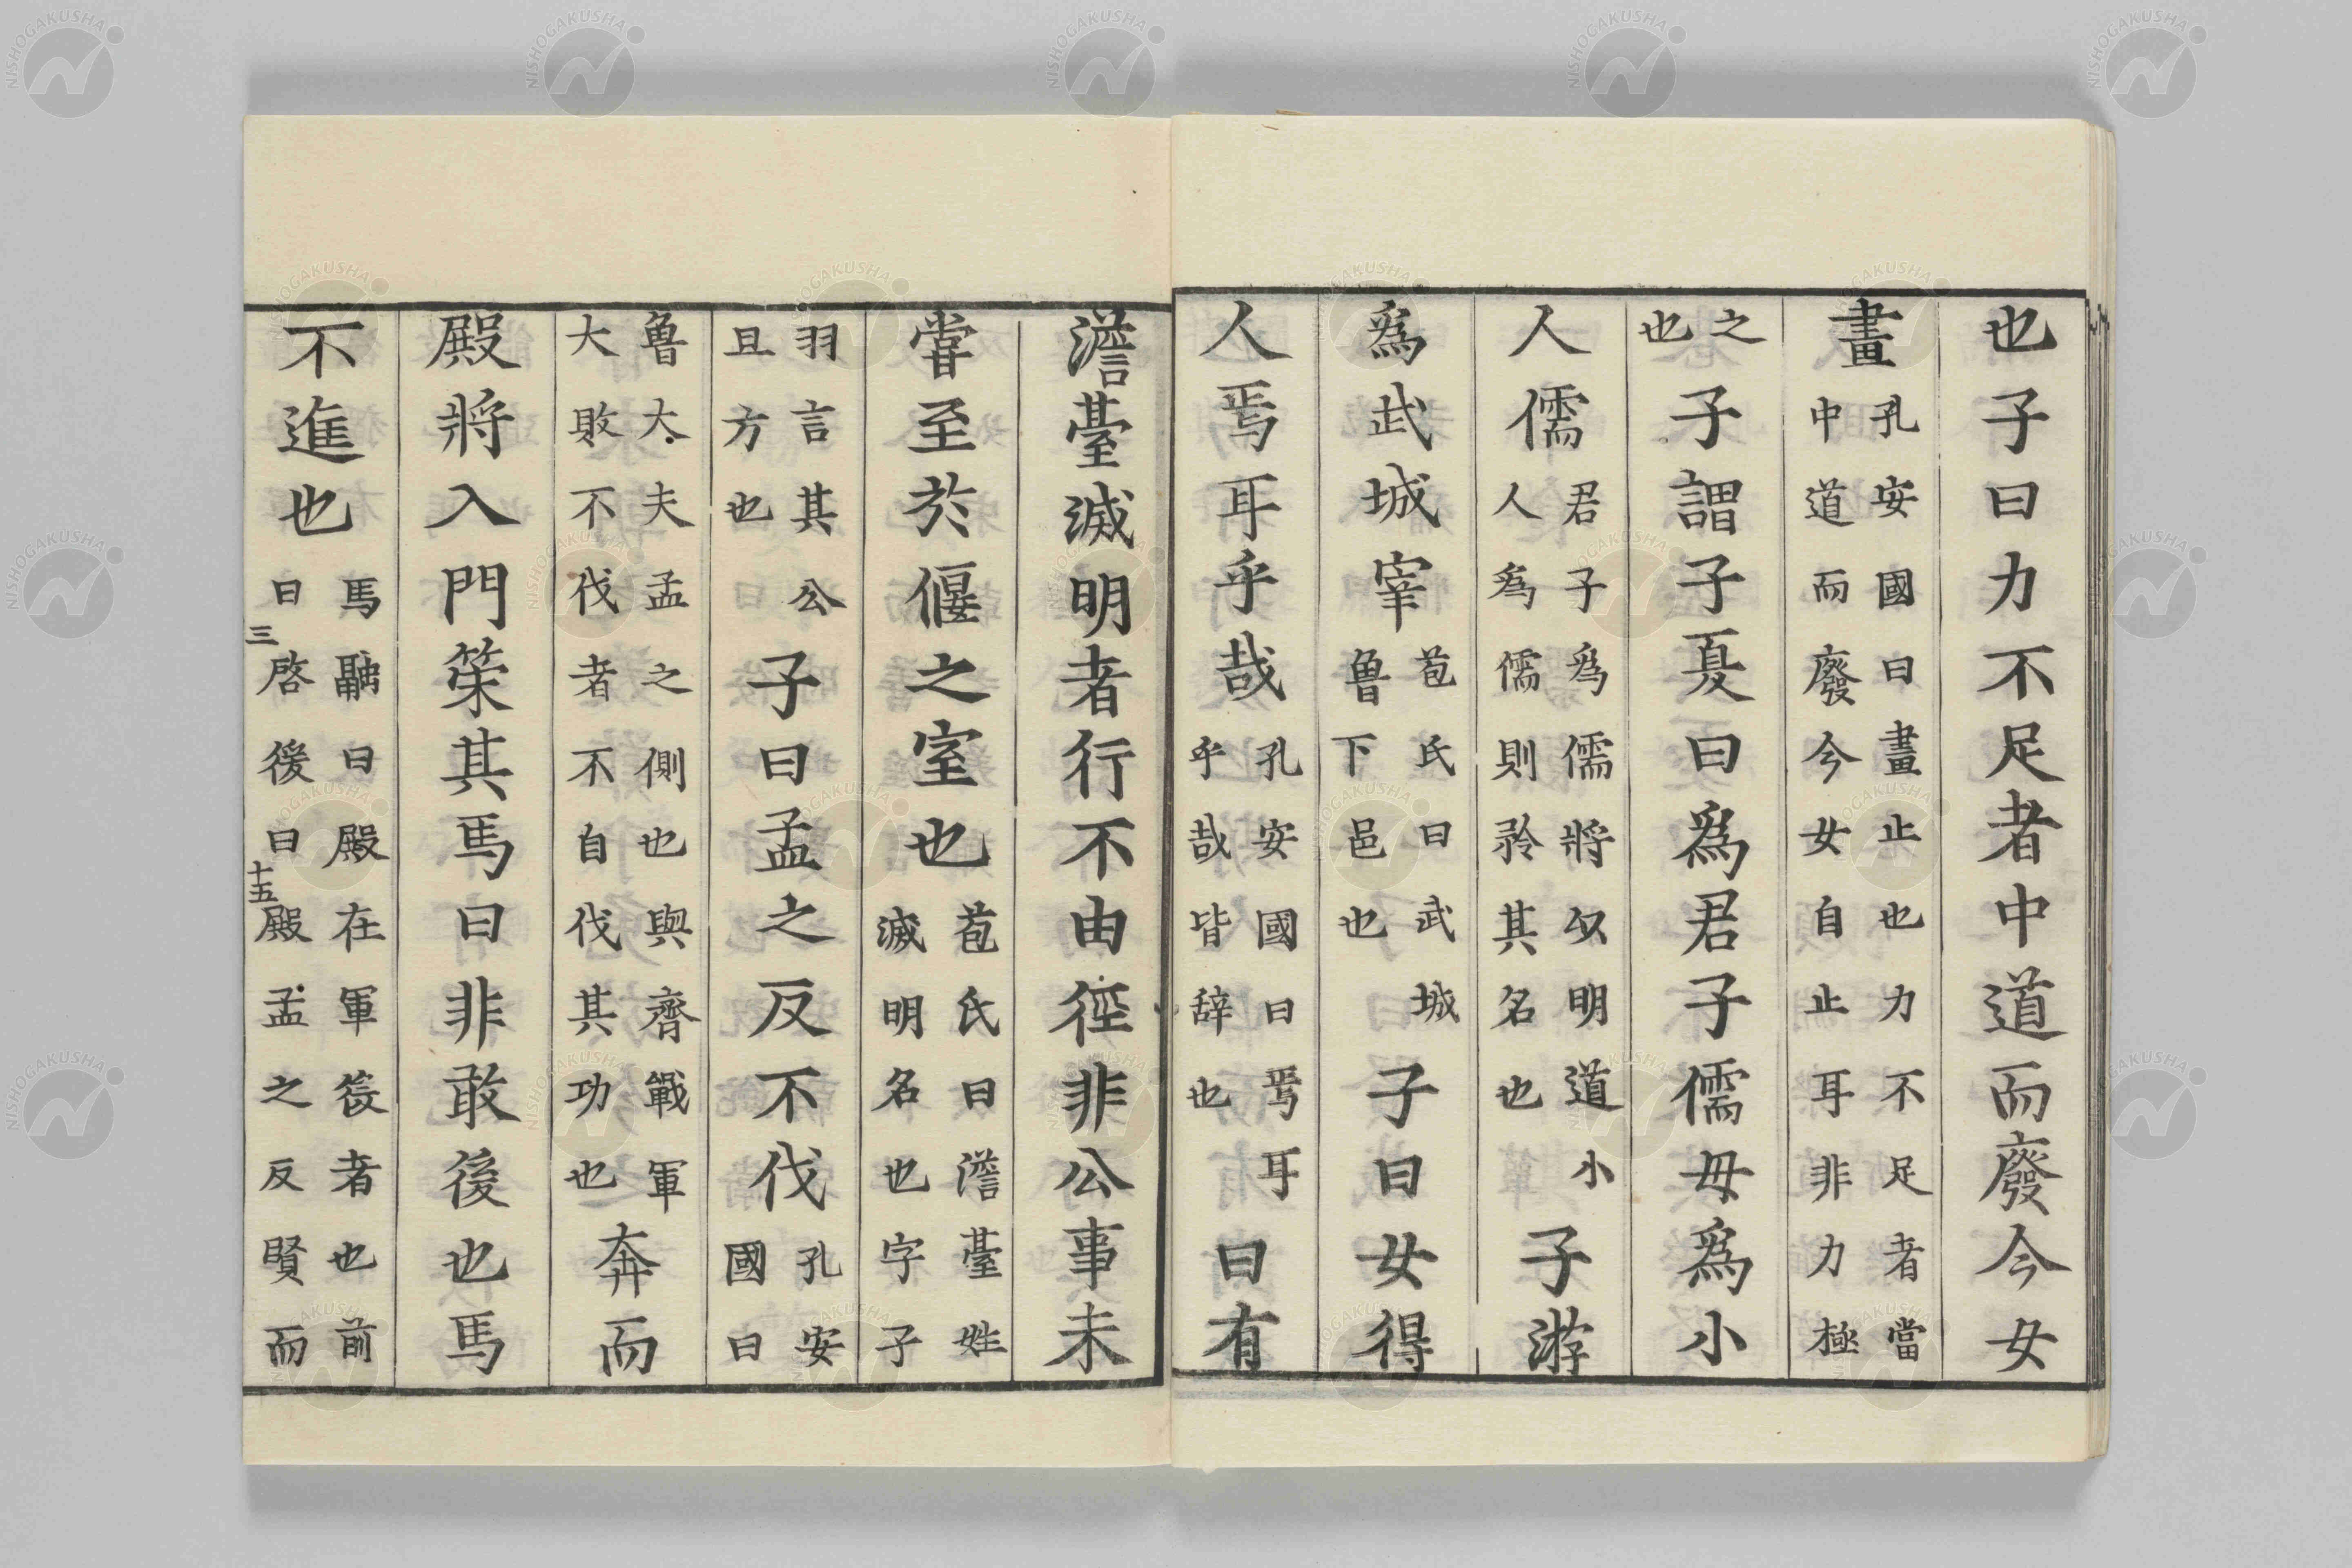 也子曰力不足者中道而廢今女
畫孔安國曰畫止也力不足者當中道而廢今女自止耳非力極
之也子謂子夏曰爲君子儒毋爲小
人儒君子爲儒將以明道小人爲儒則矜其名也子游
爲武城宰苞氏曰武城魯下邑也子曰女得
人焉耳乎哉孔安國曰焉耳乎哉皆辞也曰有
澹臺滅明者行不由徑非公事未
嘗至於偃之室也苞氏曰澹臺姓滅明名也字子
羽言其公且方也子曰孟之反不伐孔安國曰
魯大夫孟之側也與齊戰軍大敗不伐者不自伐其功也奔而
殿將入門策其馬曰非敢後也馬
不進也馬融曰殿在軍後者也前曰啓後曰殿孟之反賢而
三
十五
NISHOGAKUSHA